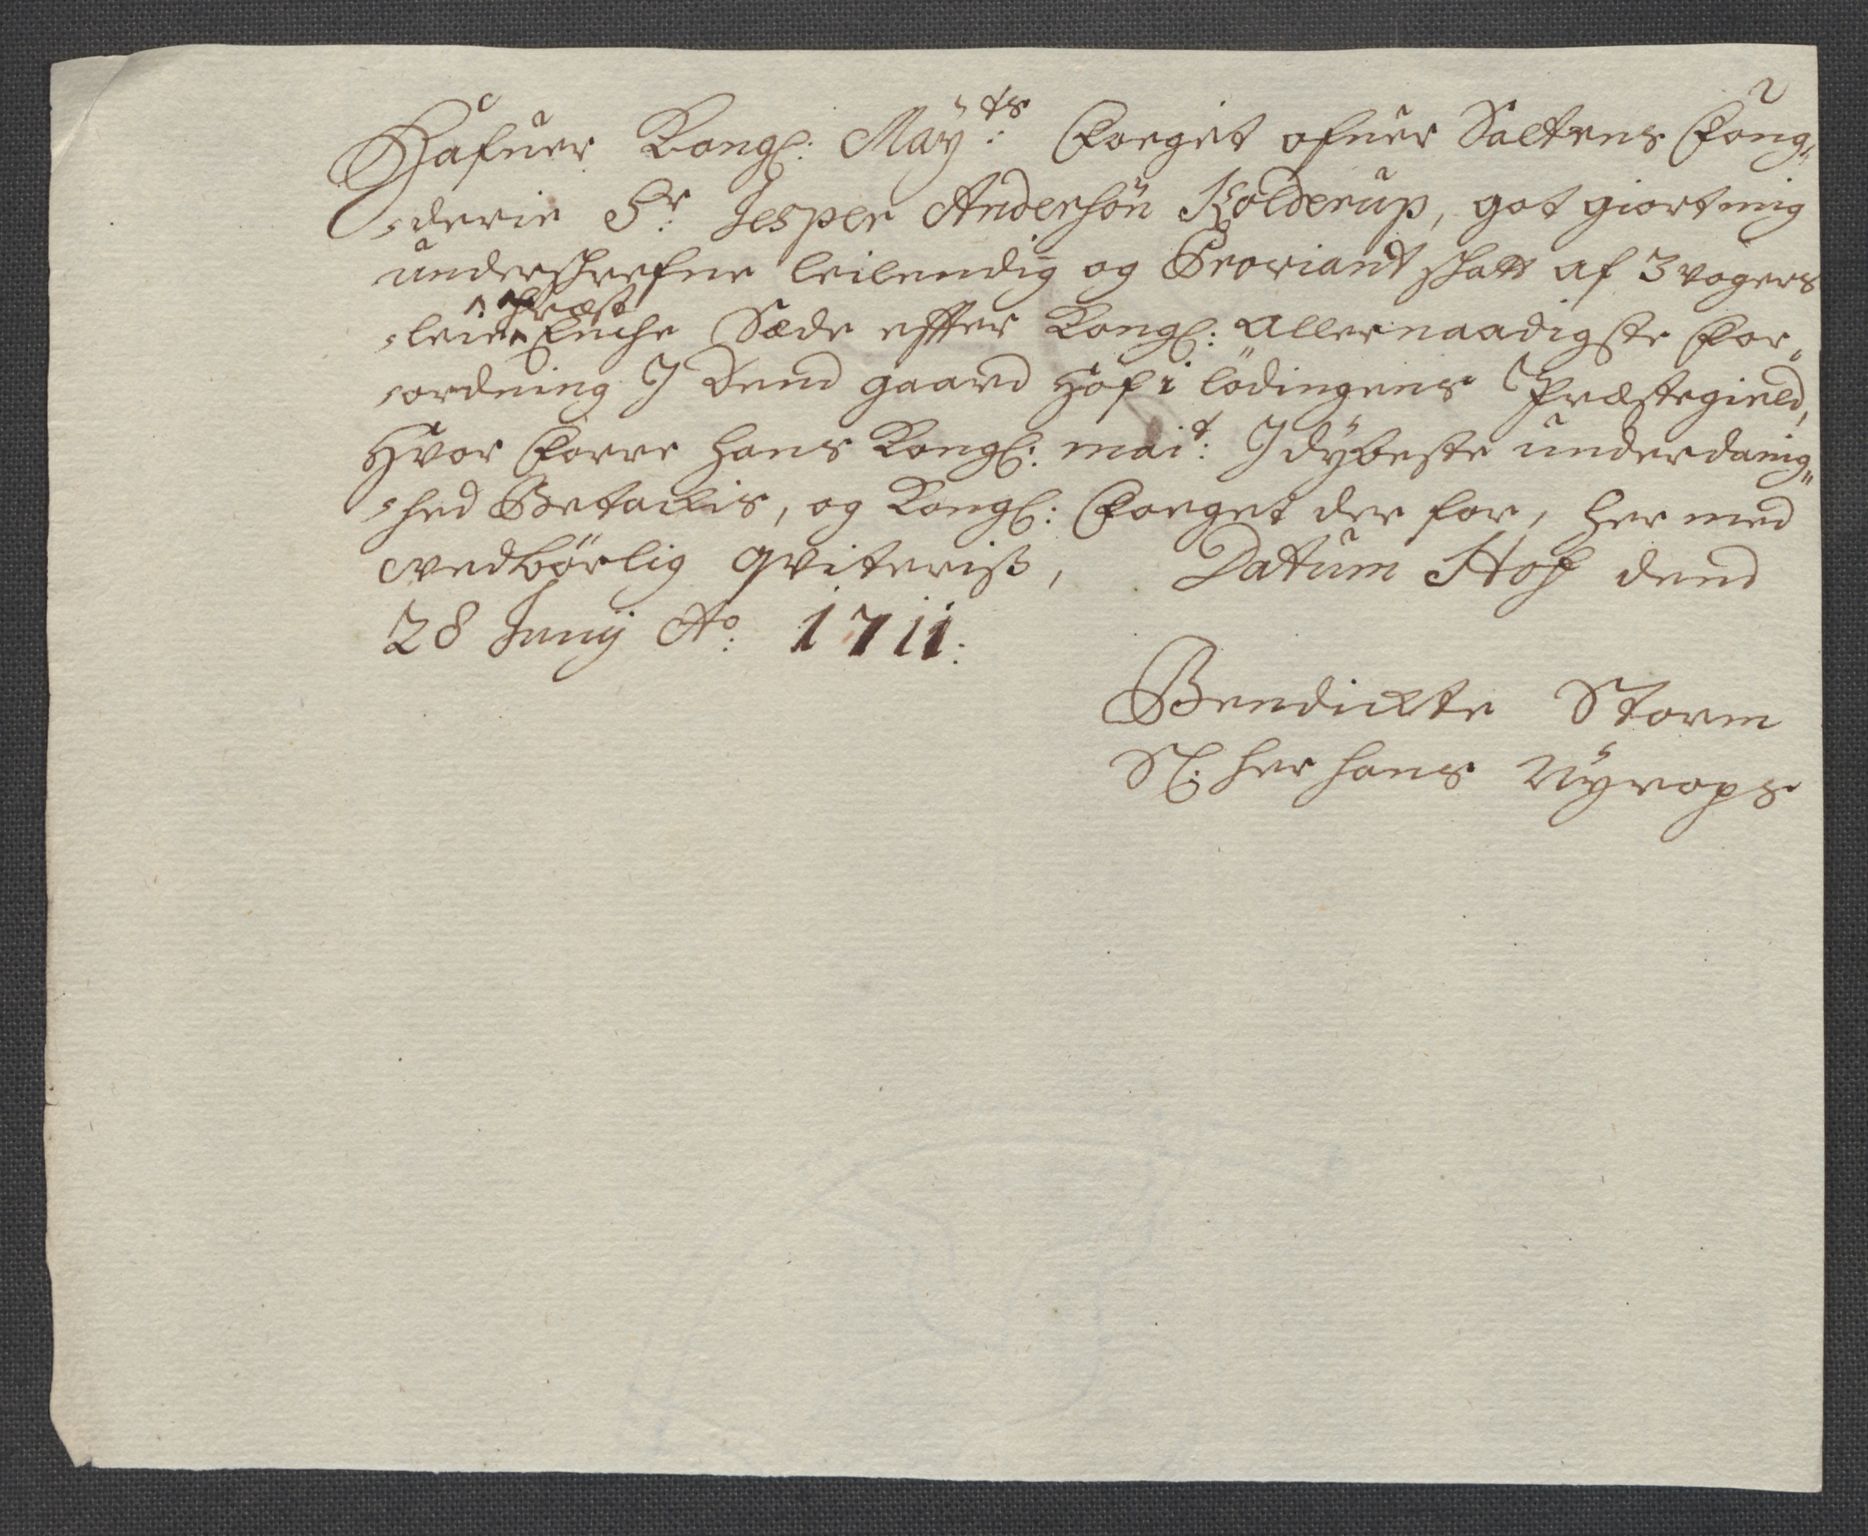 Hafuer Kongl: May:ts Foeget ofuer Saltens Foug„
„derie Sr: Jesper Andersøn Kolderup, got giort mig
underschrefne leilendig og Proviant schatt af 3 vogers
„leie ^præst Enche Sæde effter Kongl: allernaadigste For„
„ordning J Dend gaard Hof i lödingens Præstegield,
Hvor Forre hans Kongl: mait: J dÿbeste underdanig„
„hed Betackis, og Kongl: Foeget der for, her med
vedbørlig qviteriss, Datum Hof dend
28 Junij Ao: 1711:
Bendickte Storm
Sl: her hans Nÿrops